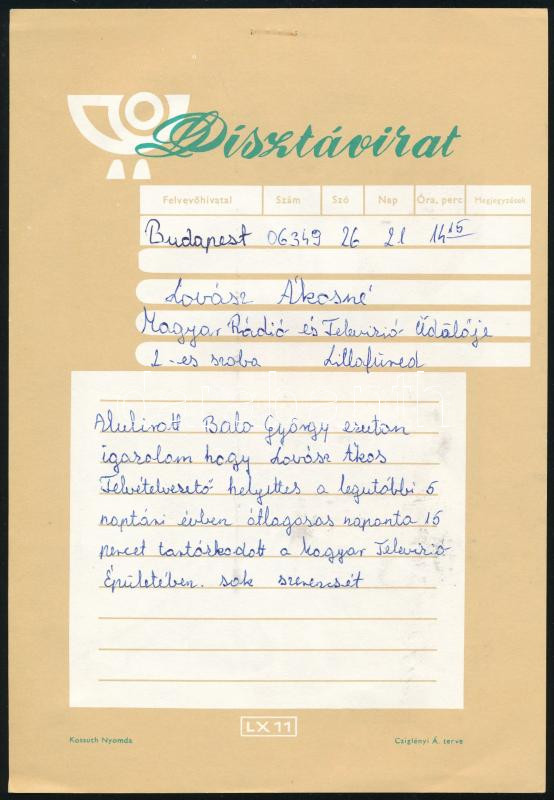 Dísztávirat
Felvevőhivatal Szám Szó Nap Óra, perc Megjegyzések
Budapest 06349 26 21 14 15
Lovász Ákosné
Magyar Rádió és Televizió Üdülője
2-es szoba Lillafüred
Alulirott Baló György ezuton
igazolom hogy Lovász Ákos
Felvételvezető helyettes a legutóbbi 5
naptári évben átlagosan naponta 15
percet tartózkodott a Magyar Televizió
Épületében. sok szerencsét
LX 11
Kossuth Nyomda Cziglényi Á. terve